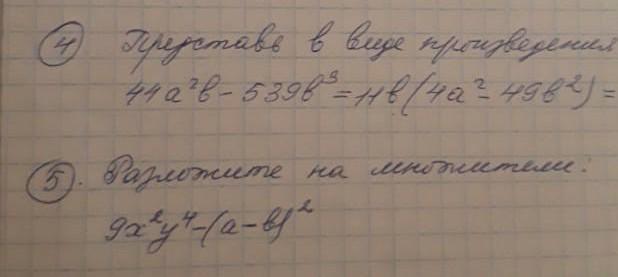 ④ Представь в виде произведения
44a²b - 539b³ = 11b(4a² - 49b²) =
⑤. Разложите на множители:
9x²y⁴ - (a - b)²